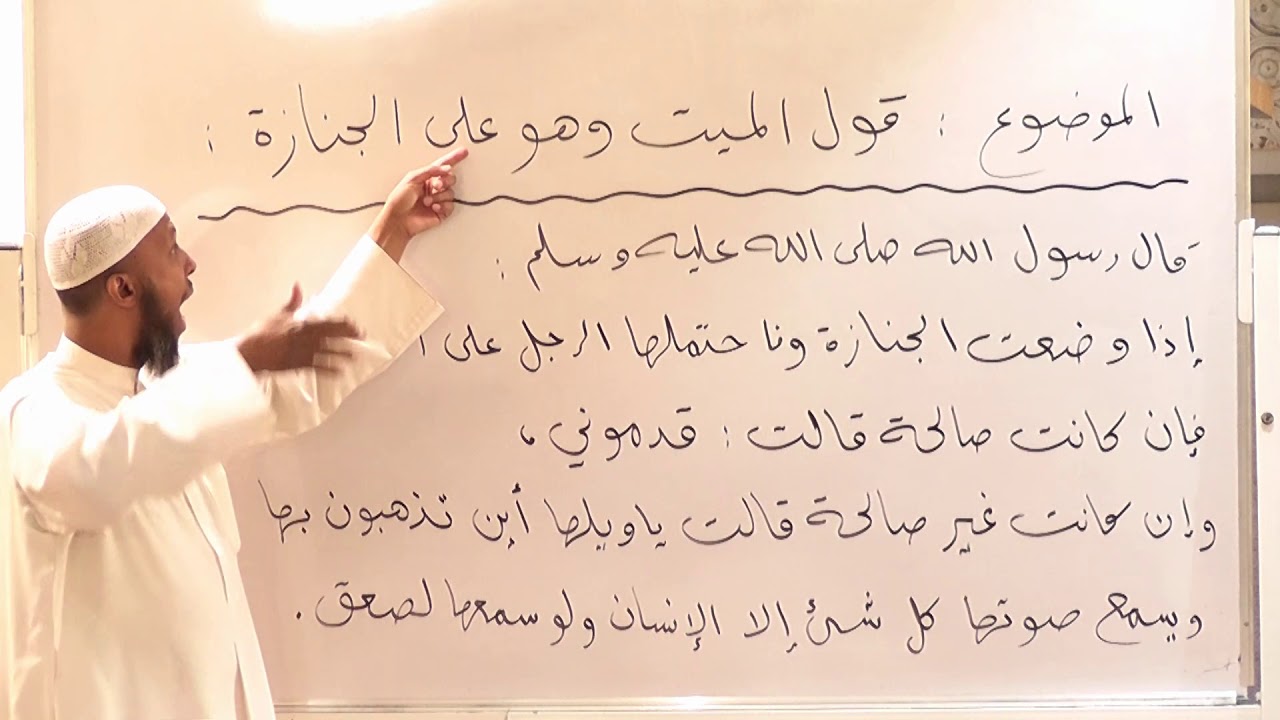 الموضوع : قول الميت وهو على الجنازة :
قال رسول الله صلى الله عليه وسلم :
إذا وضعت الجنازة ونا حتملها الرجل على
فإن كانت صالحة قالت : قدموني ،
وإن كانت غير صالحة قالت ياويلها أين تذهبون بها
ويسمع صوتها كل شئ إلا الإنسان ولو سمعها لصعق .